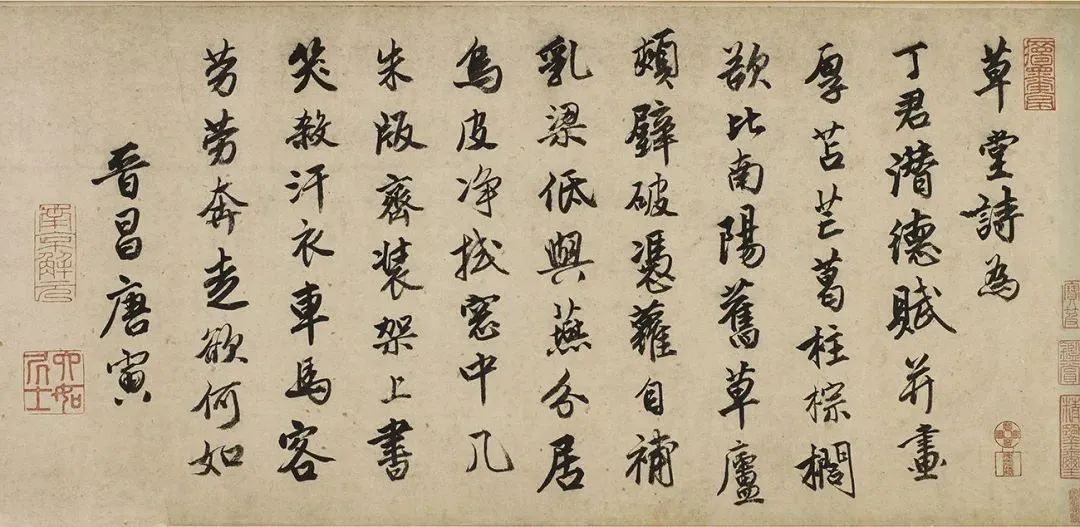 草堂詩為
丁君潛德賦并畫
厚苫茫葛柱棕櫚
欲比南陽舊草廬
頹壁破憑蘿自補
乳梁低與燕分居
烏皮净拭窓中几
朱版齊裝架上書
笑殺汗衣車馬客
勞勞奔走欲何如
晉昌唐寅
南京解元
六如居士